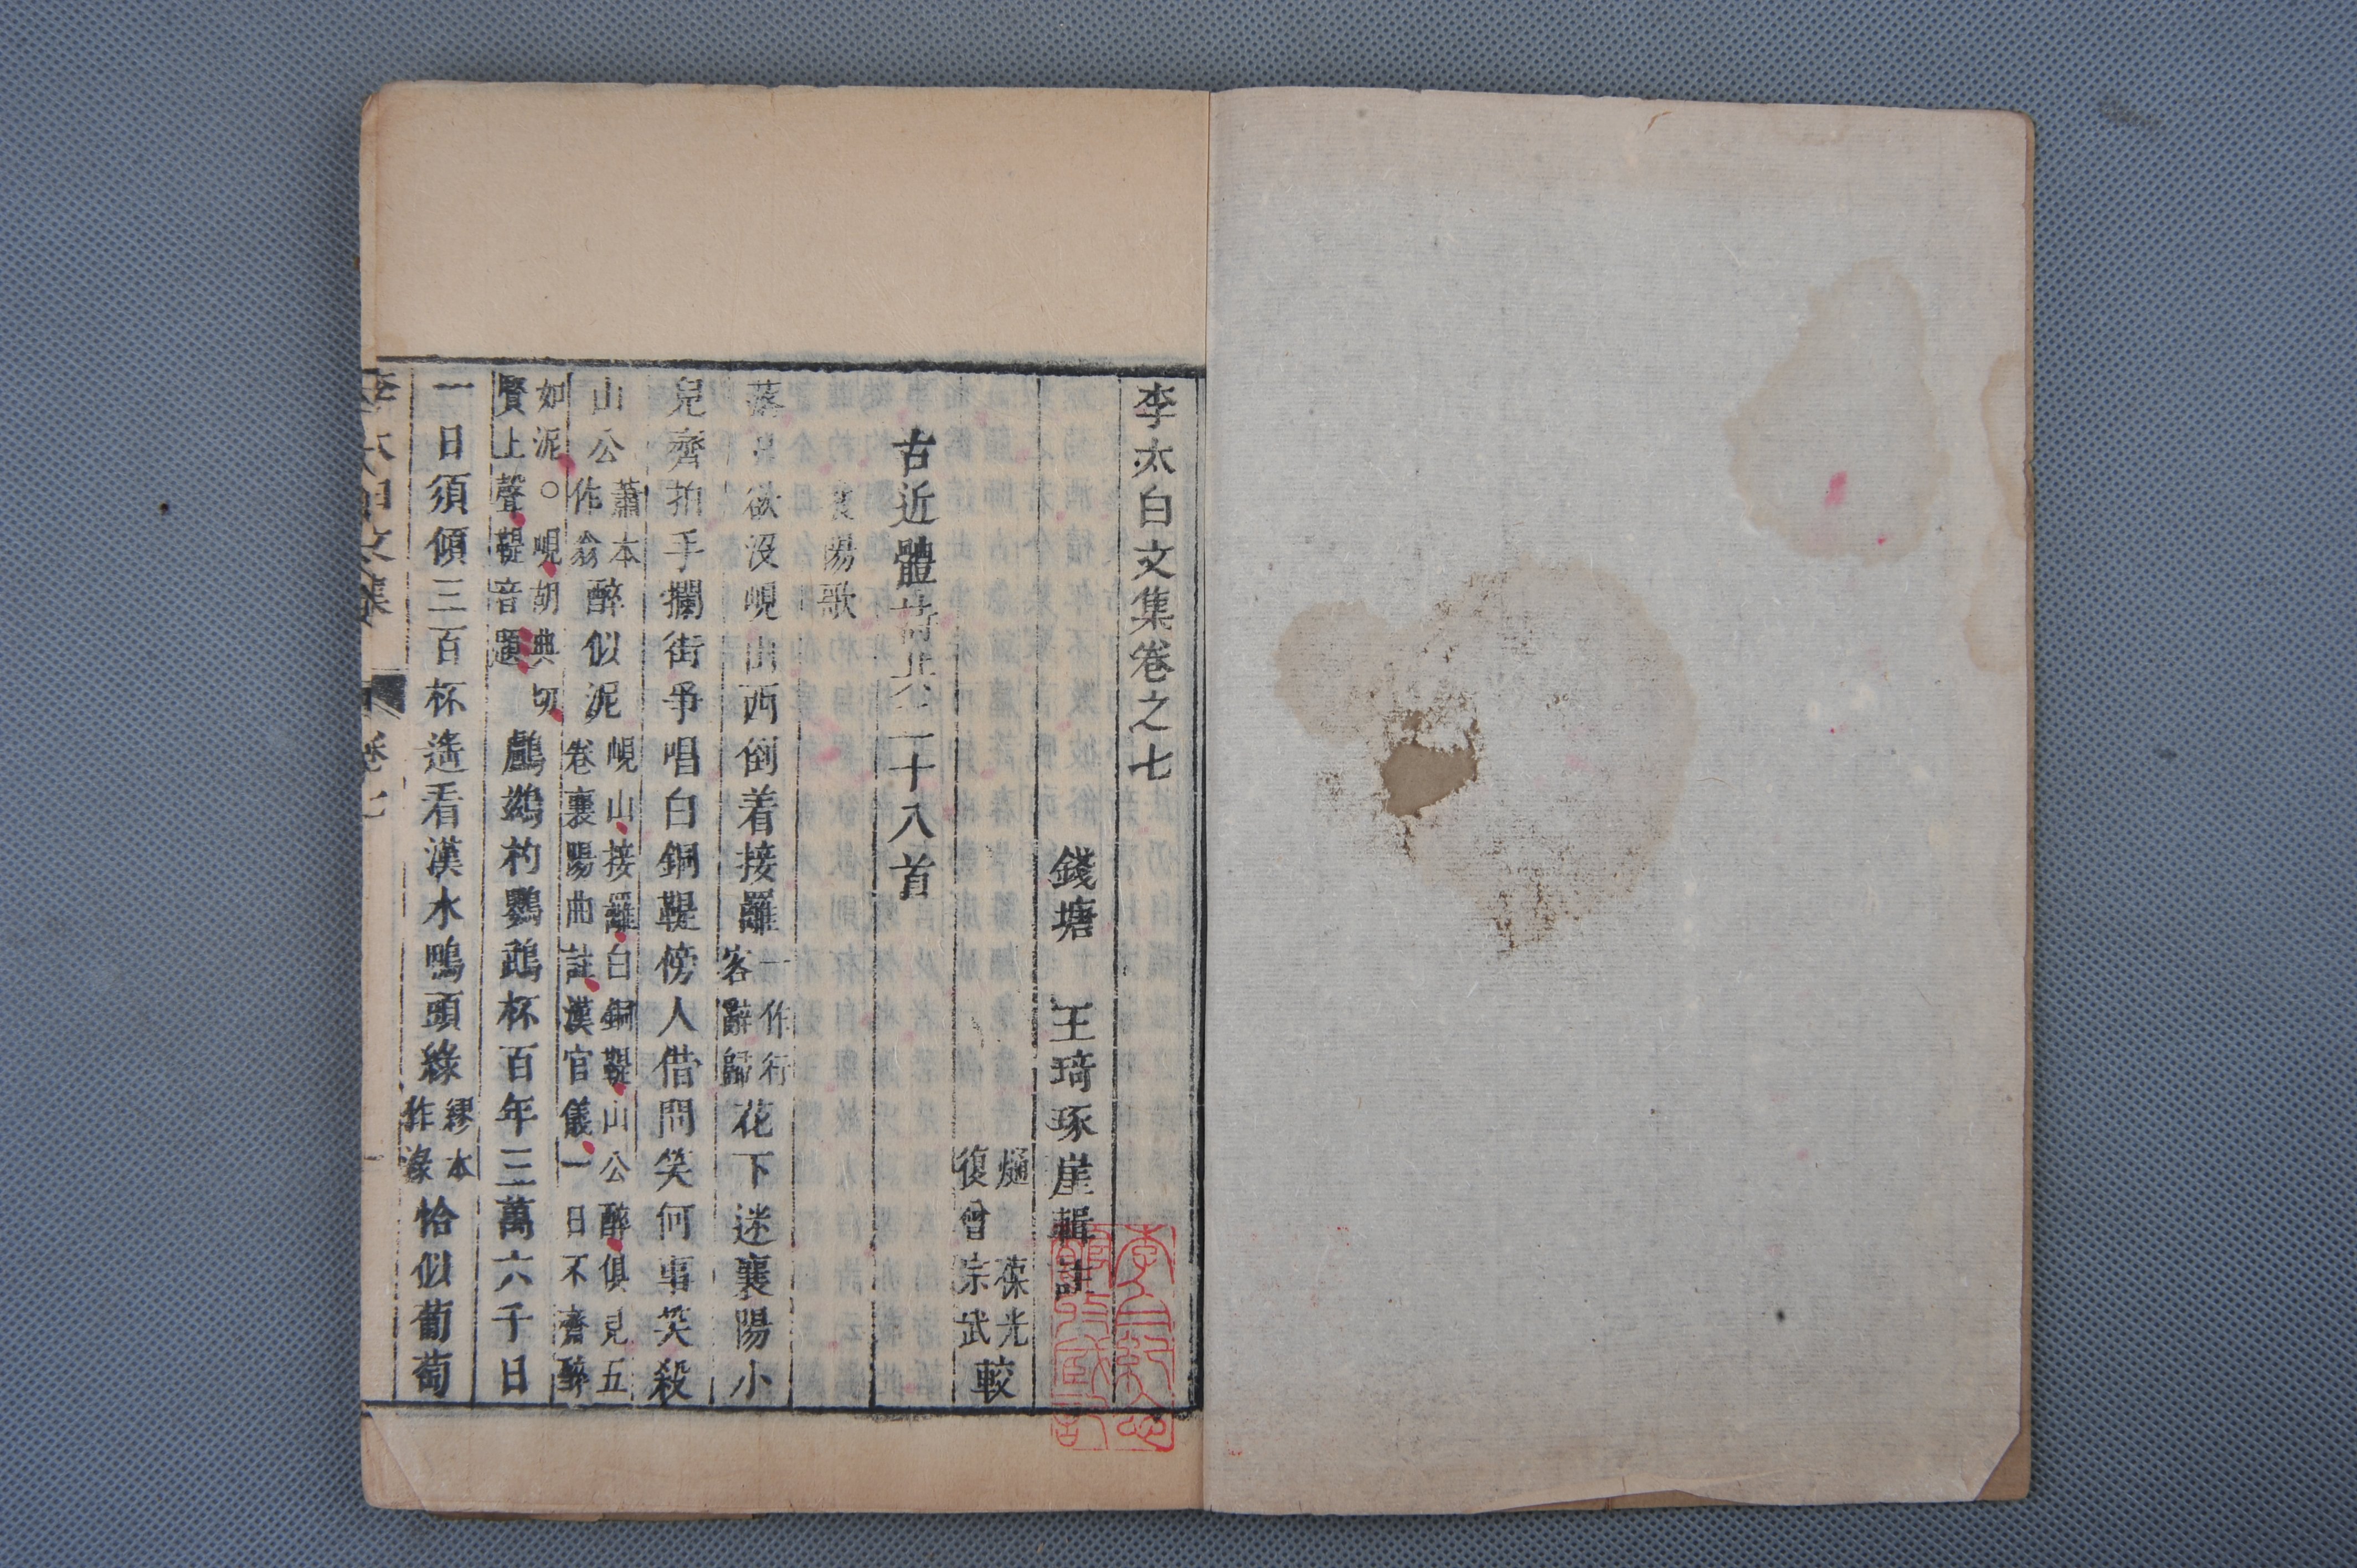 李太白文集卷之七
錢塘 王琦琢崖輯註
葆光
復曾宗武
較
古近體詩共二十八首
襄陽歌
落日欲没峴山西倒着接䍦一作行客辭歸花下迷襄陽小
兒齊拍手攔街爭唱白銅鞮傍人借問笑何事笑殺
山公蕭本作翁醉似泥峴山接䍦白銅鞮山公醉俱見五卷襄陽曲註漢官儀一日不齋醉
如泥○峴胡典切賢上聲鞮音題鸕鷀杓鸚鵡杯百年三萬六千日
一日須傾三百杯遙看漢水鴨頭綠繆本作淥恰似葡萄
李太白文集 卷七 一